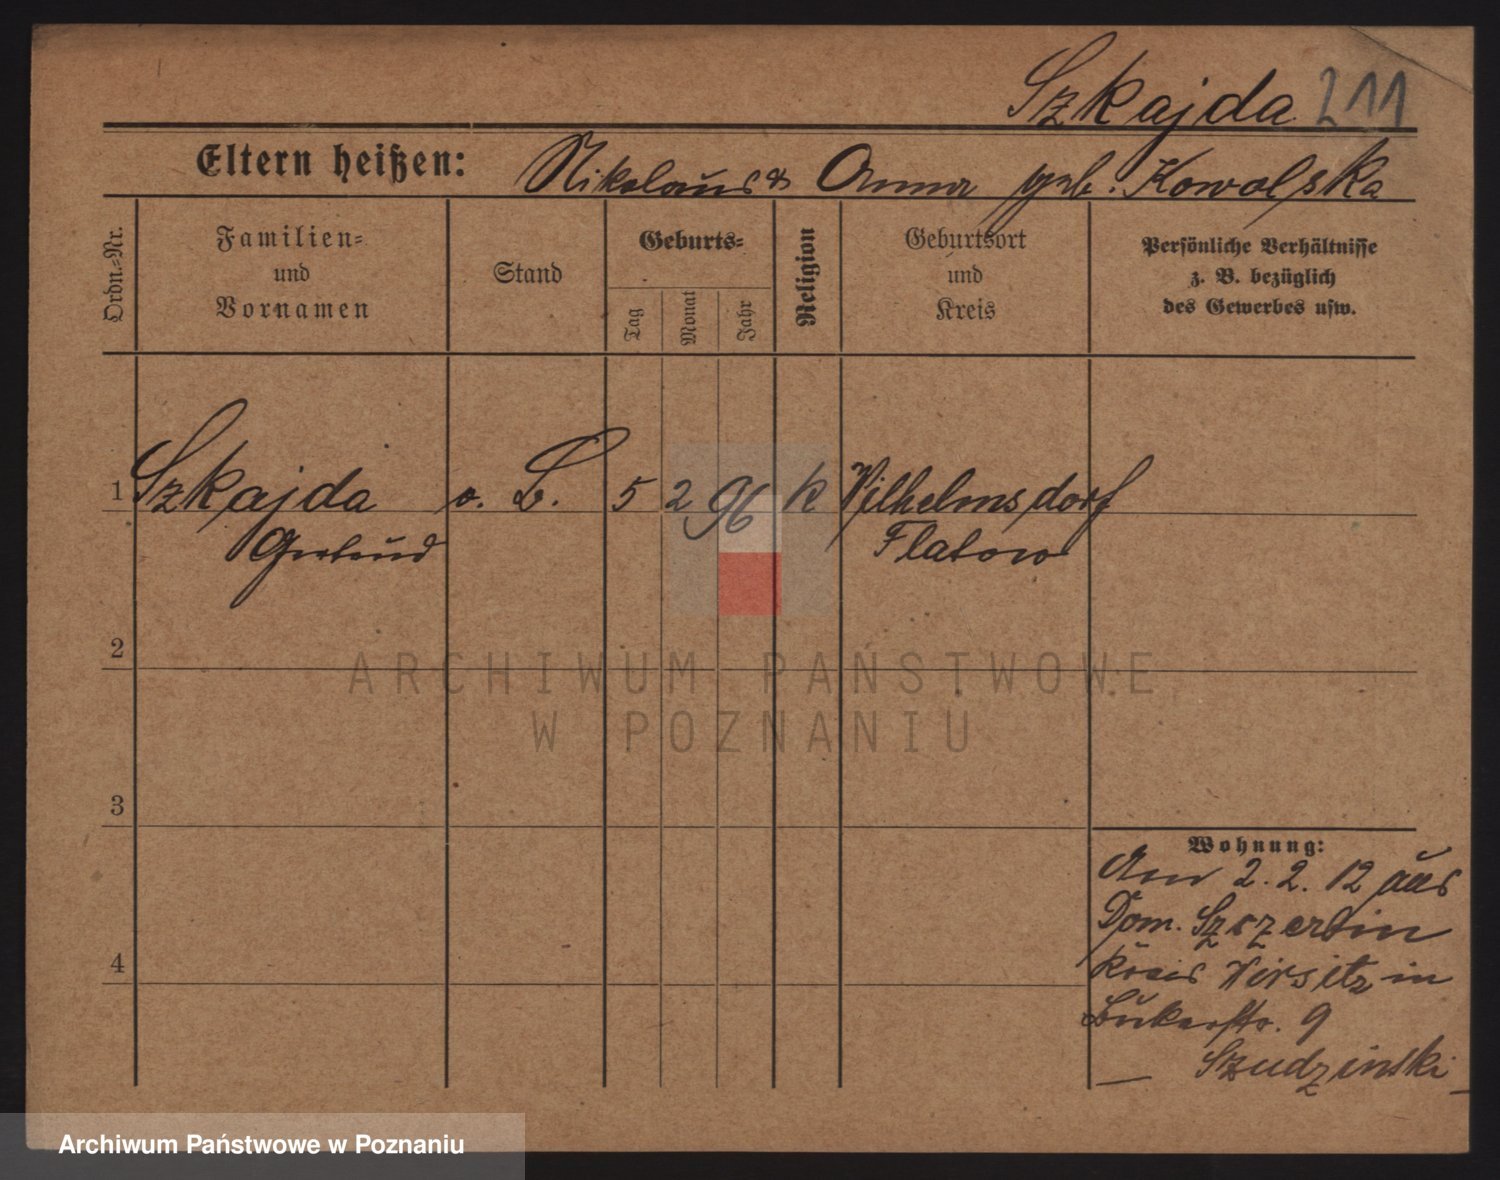 Szkajda 211
Eltern heißen: Nikolaus & Anna geb. Kowalska
Ordn.-Nr.
Familien-
und
Vornamen
Stand
Geburts-
Tag
Monat
Jahr
Religion
Geburtsort
und
Kreis
Persönliche Verhältnisse
z. B. bezüglich
des Gewerbes usw.
1 Szkajda o. B. 5 2 96 k Wilhelmsdorf
Gertrud Flatow
2
3
4
Wohnung:
Am 2. 2. 12 aus
Dom. Szczerbin
Kreis Wirsitz in
9
Szudzinski
ARCHIWUM PAŃSTWOWE
W POZNANIU
Archiwum Państwowe w Poznaniu